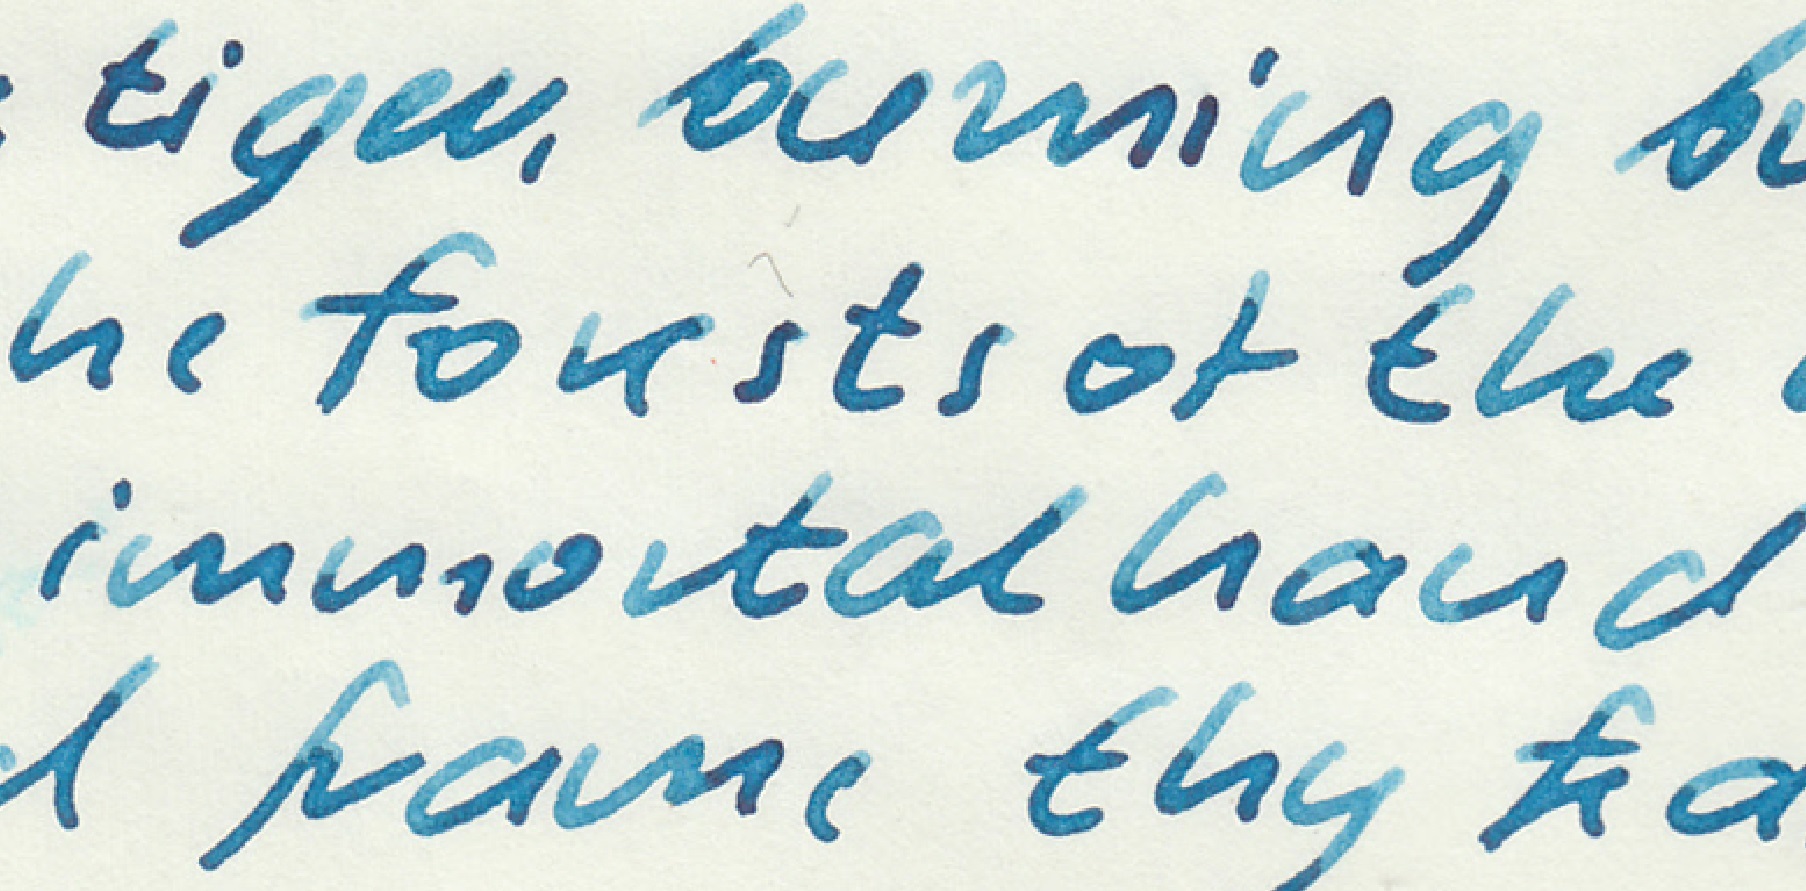 tiger, burning bu
he forests of the
immortal hand
l frame thy fea